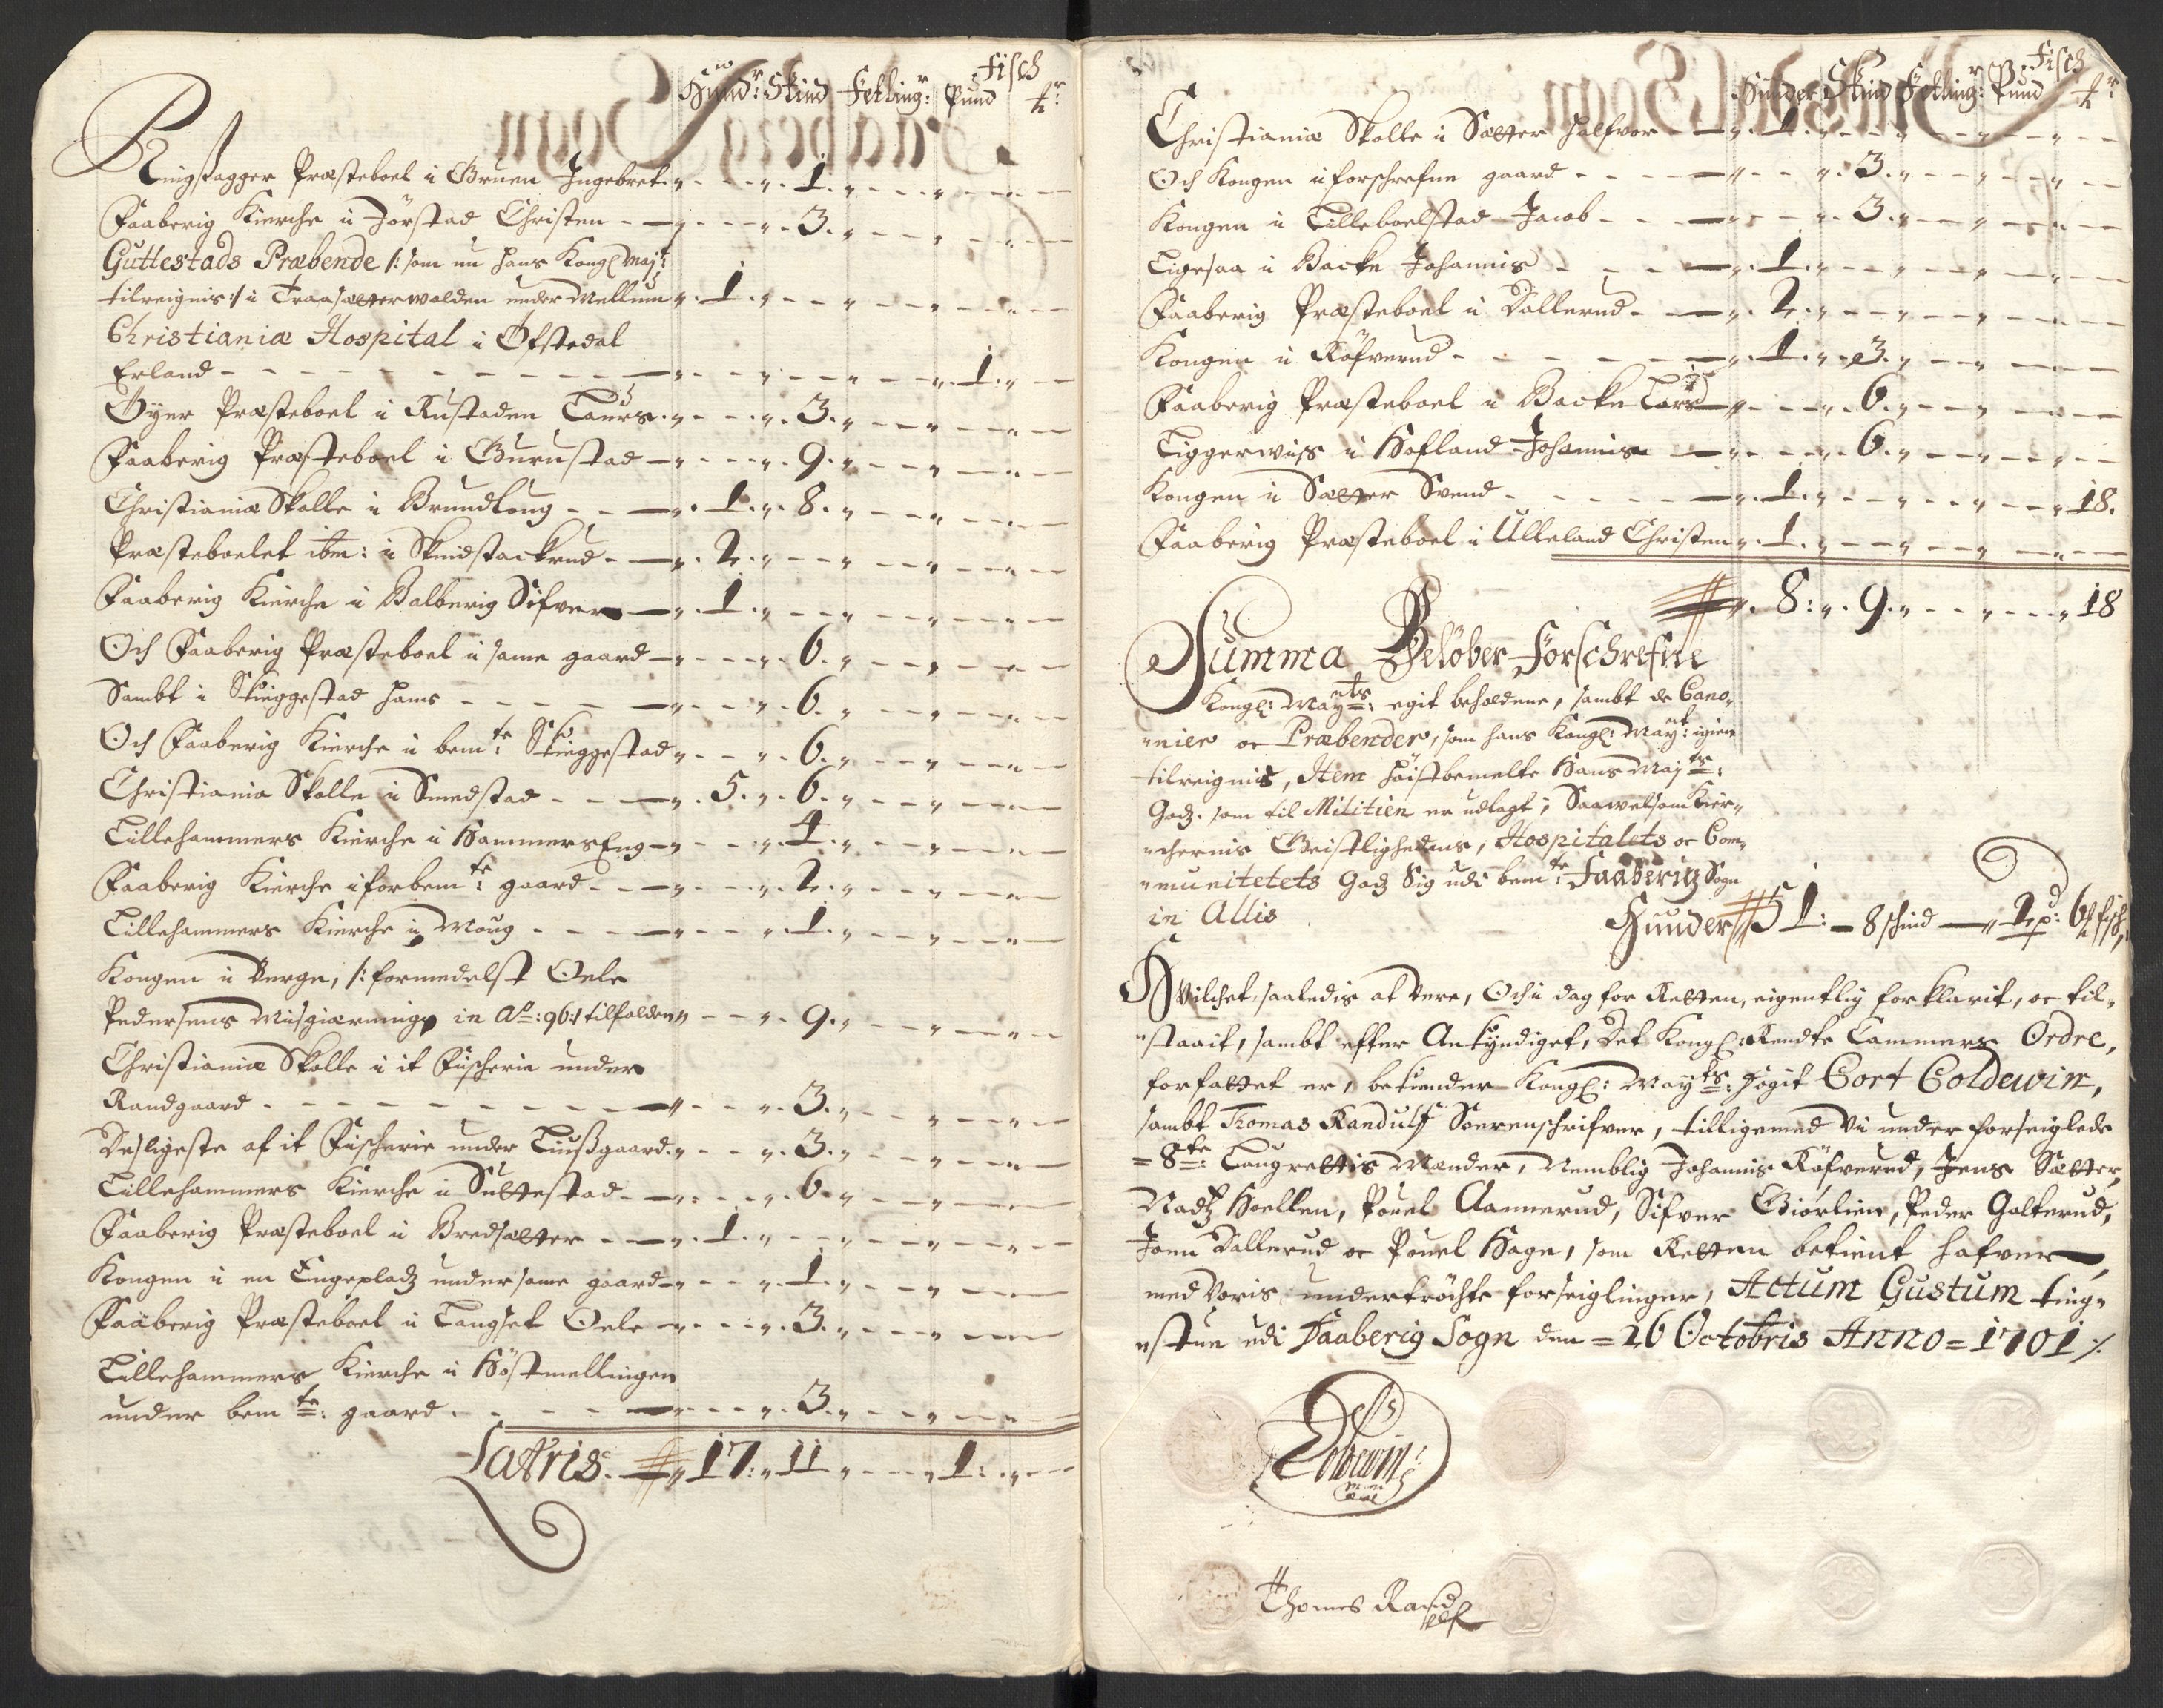 Fisch
Hund:r Skind Fetling:r Pund tr
Ringsagger Præsteboel i Bruen Ingebret „ - - „ 1. „ - - „ - - „ - -
Faaberig Kierche i Jörstad Christen - „ - - „ 3. „ - - „ - - „ - -
Guttestads Præbende /: som nu hans Kongl Maj:t
tilreignis :/ i Traasætterwolden under Mellum „ 1. „ - - „ - - „ - -
Christianiæ Hospital i Ofstedal
Erland - - - - „ - - „ - - „ - - „ 1. „ - -
Öyer Præsteboel i Rustaden Laurs „ - - „ 3. „ - - „ - - „ - -
Faaberig Præsteboel i Burustad - „ - - „ 9. „ - - „ - - „ - -
Christianiæ Skolle i Brundloug - - „ 1. „ 8. „ - - „ - - „ - -
Præsteboelet ibm: i Skeidstackrud - „ 2. „ - - „ - - „ - -
Faaberig Kierche i Balberig Sifver - „ 1. „ - - „ - - „ - -
Och Faaberig Præsteboel i same gaard - „ - - „ 6. „ - - „ - - „ - -
Sambt i Skieggestad Hans - - - „ - - „ 6. „ - - „ - - „ - -
Och Faaberig Kierche i bem:te Skieggestad „ - - „ 6. „ - - „ - - „ - -
Christiania Skolle i Smedstad - - „ 5. „ 6. „ - - „ - - „ - -
Lillehammers Kierche i Hammers Eng - „ - - „ 4. „ - - „ - - „ - -
Faaberig Kierche i forbem:te gaard - - „ - - „ 2. „ - - „ - - „ - -
Lillehammers Kierche i Moug - - - „ - - „ 1. „ - - „ - - „ - -
Kongen i Berge, /: formedelst Oele
Pedersens Misgierning in Ao: 96 :/ tilfalden „ - - „ 9. „ - - „ - - „ - -
Christianiæ Skolle i it Fischerie under
Randgaard - - - - „ - - „ 3. „ - - „ - - „ - -
Desligeste af it Fischerie under Liusgaard „ - - „ 3. „ - - „ - - „ - -
Lillehammers Kierche i Suttestad - - „ - - „ 6. „ - - „ - - „ - -
Faaberig Præsteboel i Bredsætter - - „ 1. „ - - „ - - „ - -
Kongen i en Engepladz under same gaard - „ - - „ 1. „ - - „ - - „ - -
Faaberig Præsteboel i Langset Oele - „ - - „ 3. „ - - „ - - „ - -
Lillehammers Kierche i Höstmellingen
under bem:te gaard - - - „ - - „ 3. „ - - „ - - „ - -
Lattris. - „ 17: „ 11 „ - - „ 1: „ - -
Fisch
Hunder Skind Fetling:r Pund tr
Christianiæ Skolle i Sætter Halfvor - „ 1. „ - - „ - - „ - -
Och Kongen i forschrefne gaard - - „ - - „ 3. „ - - „ - - „ - -
Kongen i Lilleboelstad Jacob - - „ - - „ 3. „ - - „ - - „ - -
Ligesaa i Backe Johannis - - - „ 1. „ - - „ - - „ - -
Faaberig Præsteboel i Dallerud - - „ 2. „ - - „ - - „ - -
Kongen i Röfverud - - - - „ 1. „ 3. „ - - „ - - „ - -
Faaberig Præsteboel i Backe Lars - „ - - „ 6. „ - - „ - - „ - -
Liggerwiis i Hofland Johannis - „ - - „ 6. „ - - „ - - „ - -
Kongen i Sætter Svend - - - - „ 1. „ - - „ - - „ 18.
Faaberig Præsteboel i Ulleland Christen „ 1. „ - - „ - - „ - -
„ 8: „ 9. „ - - „ - - „ 18
Summa Belöber forschrefne
Kongl: May:ts egit beholdene, sambt de Cano„
„nier oc Præbender, som hans Kongl: May:t igien
tilreignis, Item höistbemelte Hans Maj:ts
Godz. som til Militien er udlagt, Saawelsom Kier„
„chernis Geistlighedens, Hospitalets oc Com„
„munitetets Godz Sig udi bem:te Faaberig Sogn
in Allis Hunder 51: - 8 schind - 2 p:d 6 fisch,
Hvilchet saaledis at vere, Och i dag for Retten, eigentlig forklarit, oc til„
„staait, sambt efter Ankyndiget, Det Kongl: Rendte Cammers Ordre,
forfattet er, bekiender Kongl: May:ts fogit Cort Coldewin,
sambt Tromas Randulf Sorenschrifver, tilligemed Vi under forseiglede
= 8te: Laugrettis Mænder, Nemblig Johannis Röfverud, Jens Sætter,
Madtz Hoellen, Pouel Aannerud, Sifver Giörlien, Peder Galterud,
Joen Dallerud oc Pouel Hage, som Retten betient hafver,
med Voris undertröchte forseiglinger, Actum Gustum ting„
„stue udi Faaberig Sogn den = 26 Octobris Anno = 1701 ./.
Coldewin
Thomes Randulf